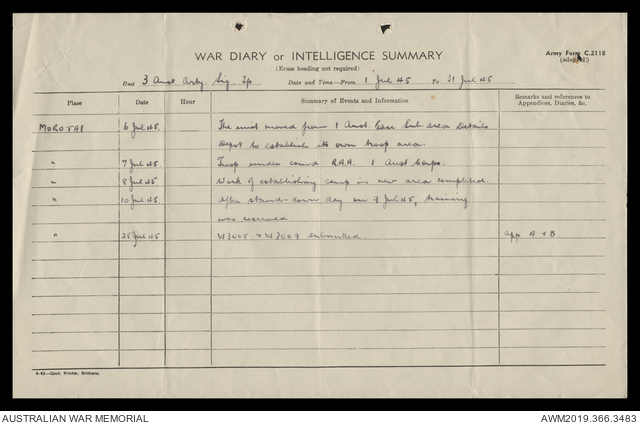 WAR DIARY or INTELLIGENCE SUMMARY
Army Form C.2118
(adapted)
(Erase heading not required)
Unit 3 Aust Arty Sig Tp Date and Time—From 1 Jul 45 To 31 Jul 45
Place Date Hour Summary of Events and Information Remarks and references to Appendices, Diaries, &c.
MOROTAI 6 Jul 45 The unit moved from 1 Aust Base Sub area Details
Depot to establish its own troop area.
" 7 Jul 45 Troop under comd R.A.A. 1 Aust Corps.
" 8 Jul 45 Work of establishing camp in new area completed.
" 10 Jul 45 After stand-down day on 9 Jul 45, training
was resumed.
" 28 Jul 45 W3008 & W3009 submitted. app A & B
6-43—Govt. Printer, Brisbane.
AUSTRALIAN WAR MEMORIAL AWM2019.366.3483